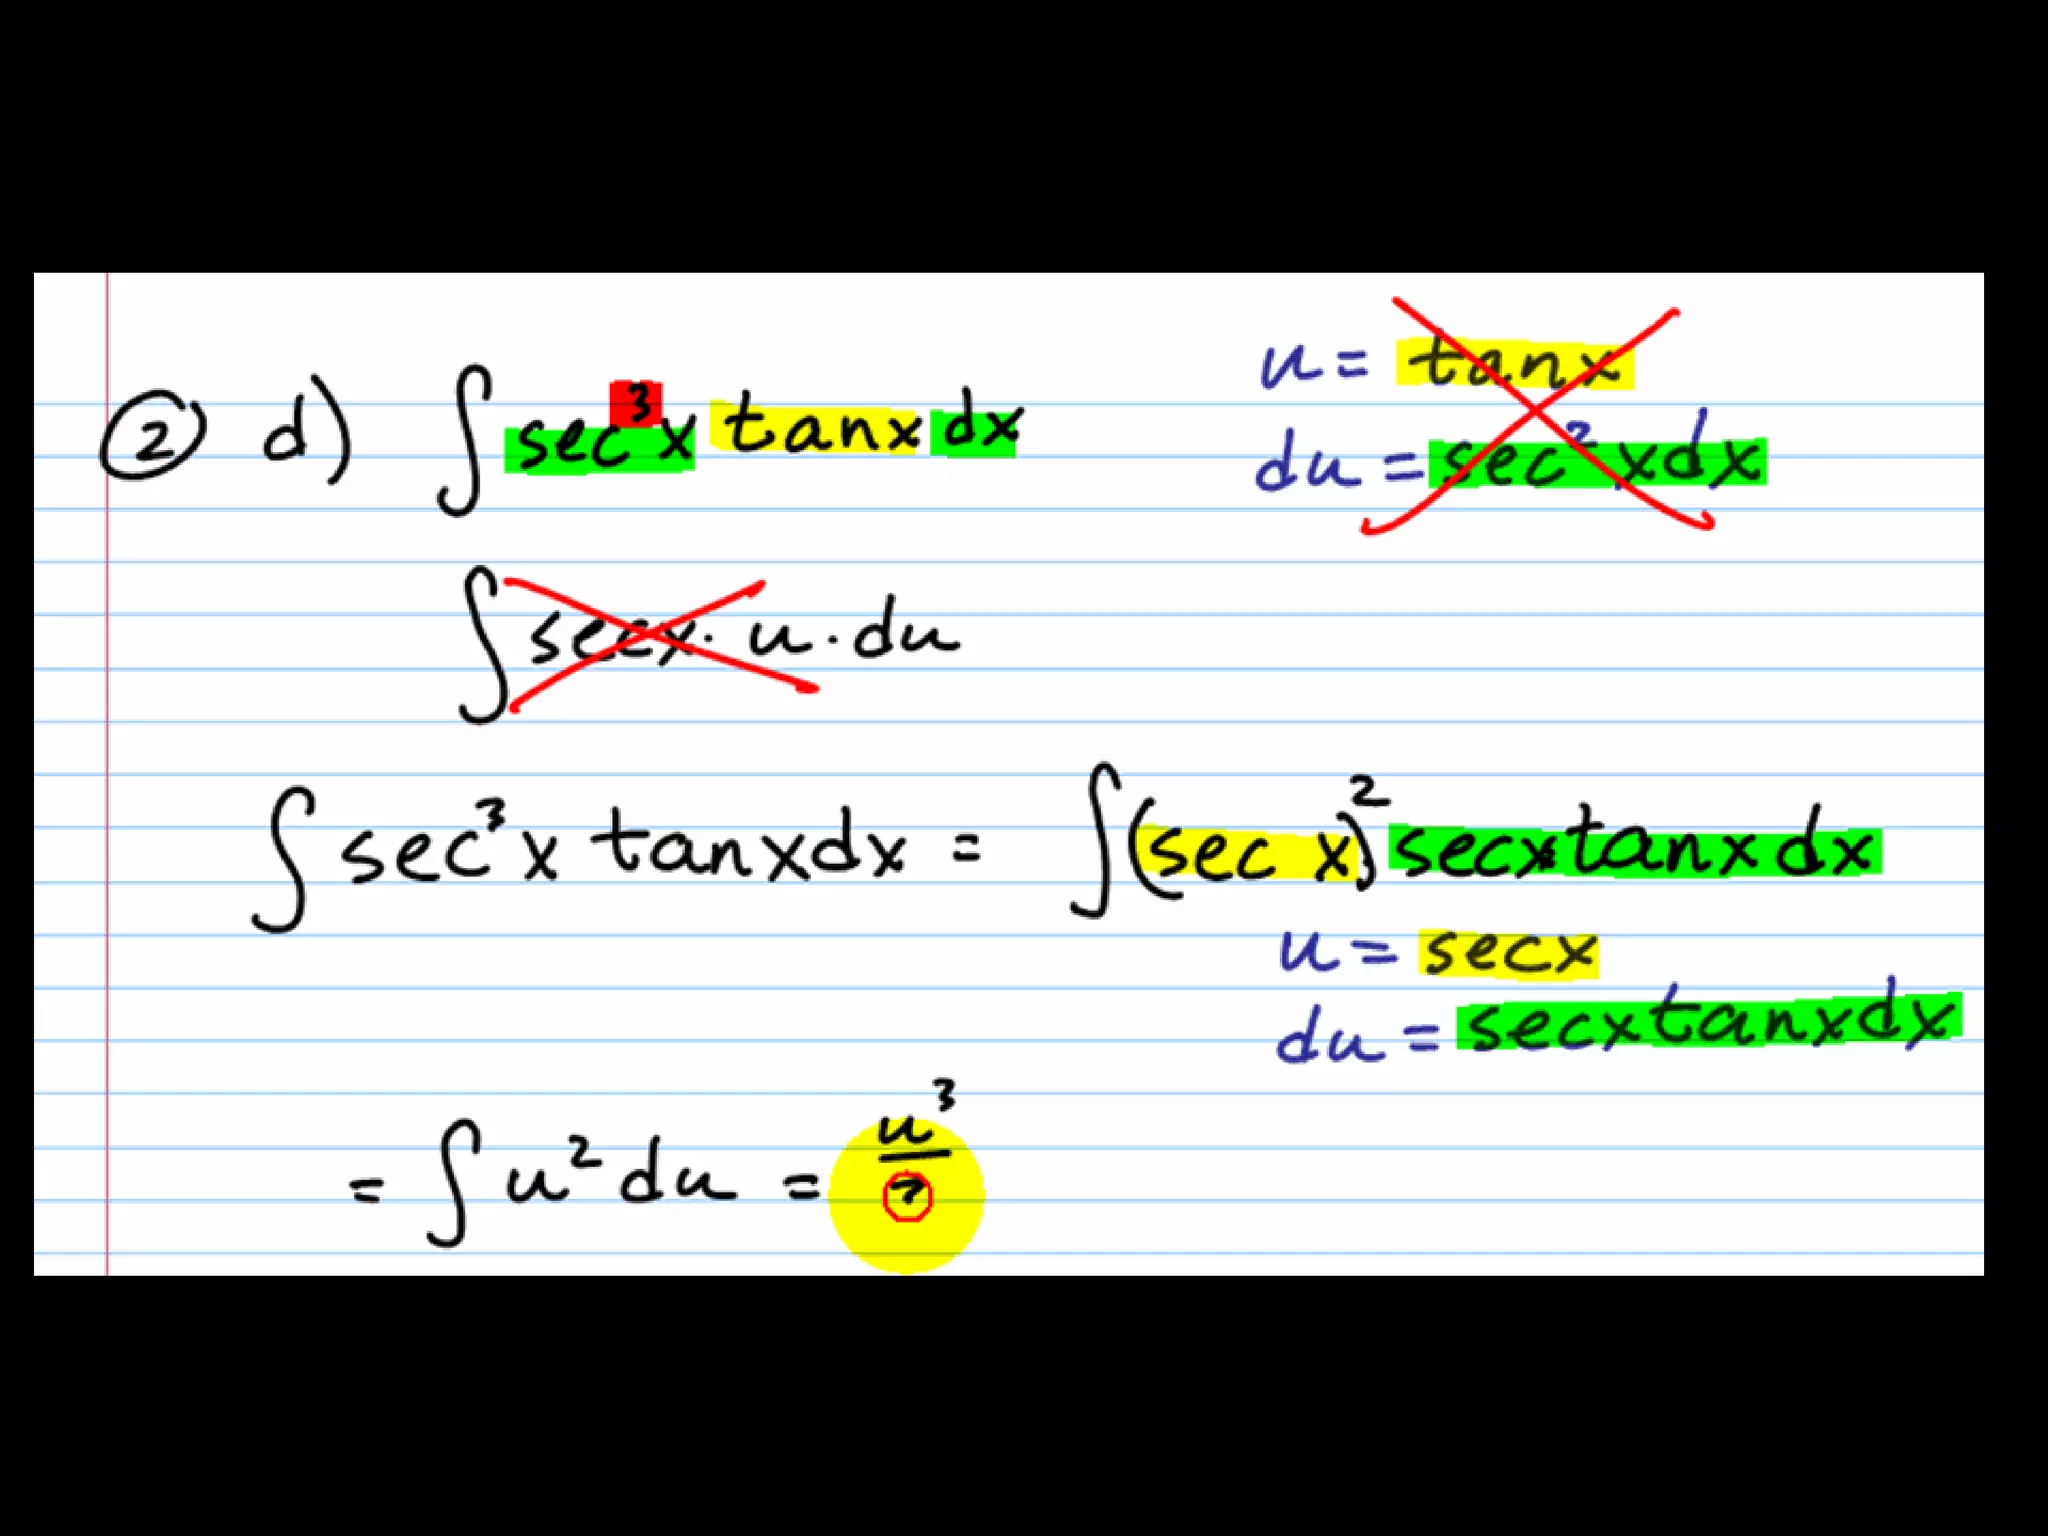 ② d) ∫ sec³x tanx dx
u = tanx
du = sec²x dx
∫ secx · u · du
∫ sec³x tanx dx = ∫ (sec x)² secx tanx dx
u = secx
du = secx tanx dx
= ∫ u² du = u³/